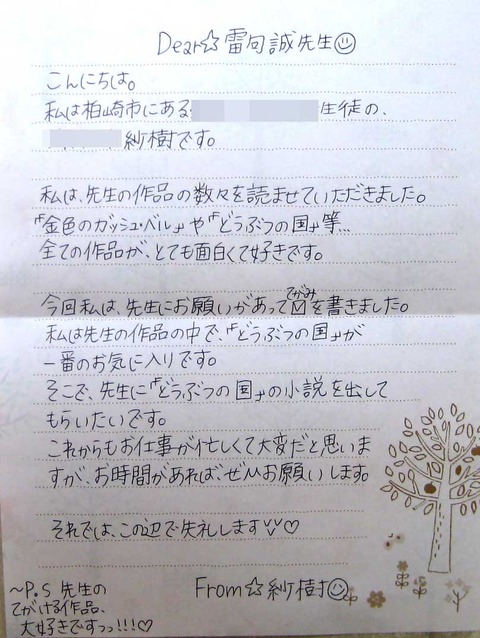 Dear☆雷句誠先生☺
こんにちは。
私は柏崎市にある 生徒の、
紗樹です。
私は、先生の作品の数々を読ませていただきました。
「金色のガッシュ・ベル」や「どうぶつの国」等…
全ての作品が、とても面白くて好きです。
今回私は、先生にお願いがあって✉(てがみ)を書きました。
私は先生の作品の中で、「どうぶつの国」が
一番のお気に入りです。
そこで、先生に「どうぶつの国」の小説を出して
もらいたいです。
これからもお仕事が忙しくて大変だと思いま
すが、お時間があれば、ぜひお願いします。
それでは、この辺で失礼します♡
From☆紗樹☺
~P.S 先生の
てがける作品、
大好きですっっ!!!♡